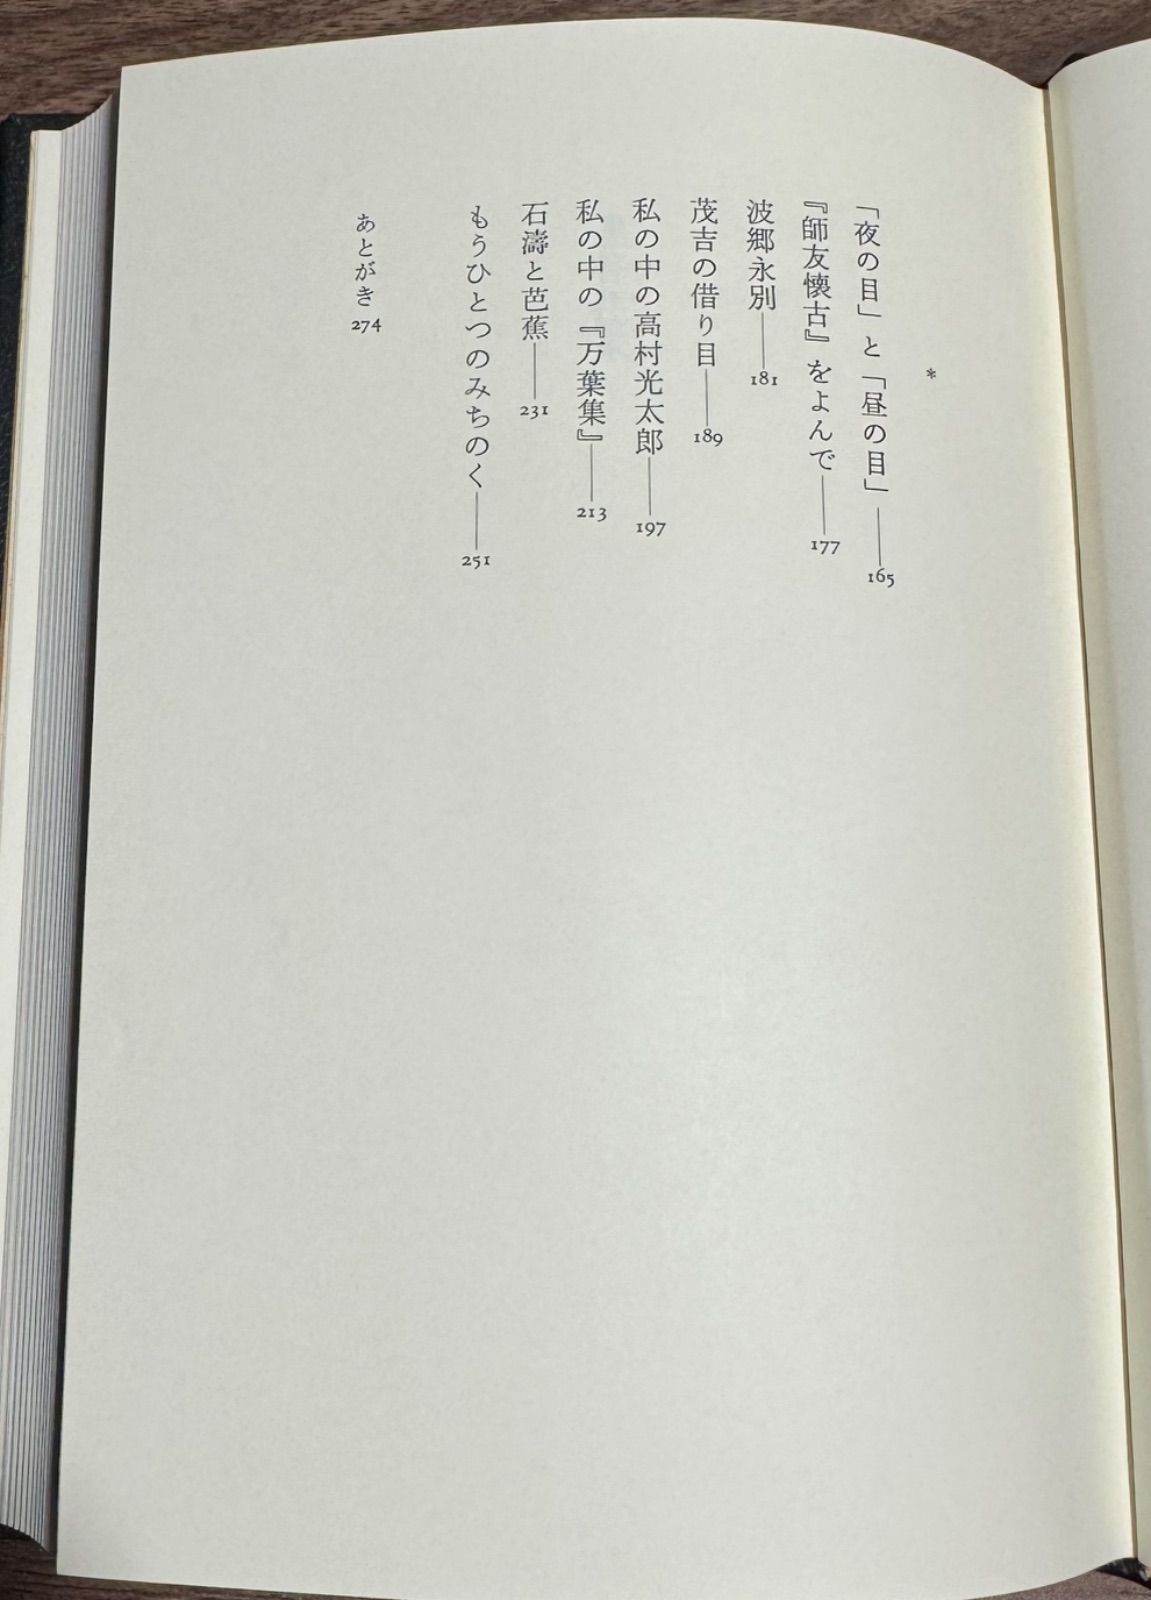 *
「夜の目」と「昼の目」——165
『師友懐古』をよんで——177
波郷永別——181
茂吉の借り目——189
私の中の高村光太郎——197
私の中の『万葉集』——213
石濤と芭蕉——231
もうひとつのみちのく——251
あとがき 274